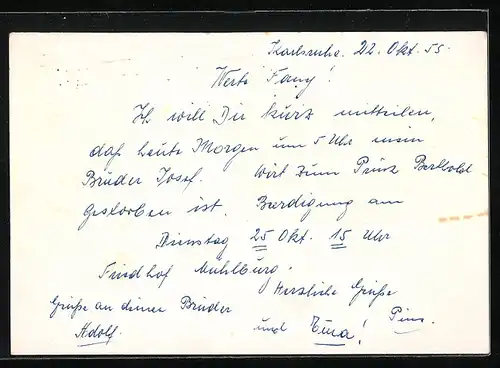 Karlsruhe. 22. Okt. 55.
Werte Fany!
Ich will Dir kurz mitteilen,
daß heute Morgen um 5 Uhr mein
Bruder Josef. Wirt zum Prinz Berthold
gestorben ist. Beerdigung am
Dienstag 25 Okt. 15 Uhr
Friedhof Mühlburg.
Herzliche Grüße
Grüße an deine Brüder
Adolf.
und Tina! Pius.